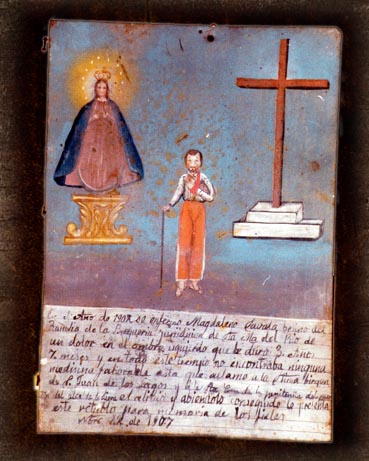 En el Año de 1904 se enfermo Magdaleno besino del
Rancho de la juridicion de Sta Ma del Rio de
un dolor en el ombro isquierdo que le duro 3 Años
7 meses y en todo este tiempo no encontraba ninguna
medisina faborable asta que aclamo a la Stma birgen
de S. Juan de los Lagos y a la Sta Cruz de la penitencia del
el alibio y abiendolo conseguido le presenta
este retablo para memoria de los fieles
de 1907